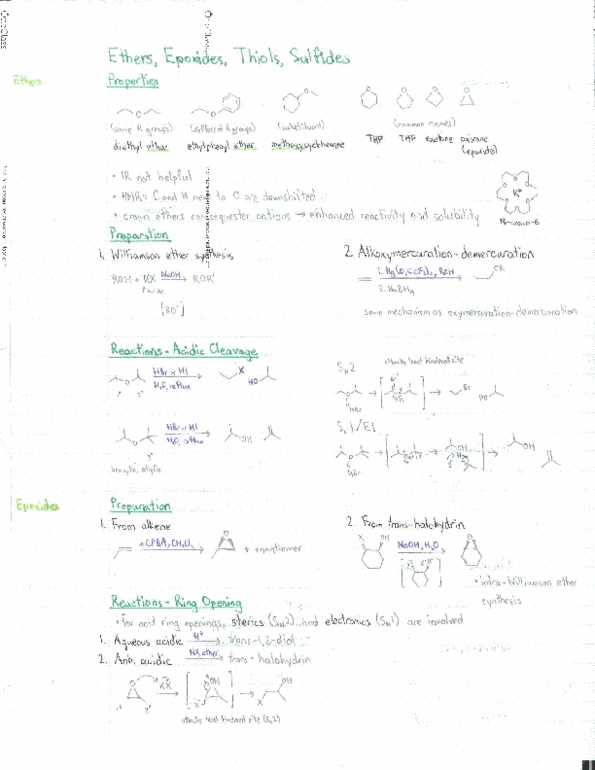 OneClass
Ethers, Epoxides, Thiols, Sulfides
Ethers
Properties
(same R groups) (different R groups) (substituent) (common names)
diethyl ether ethylphenyl ether methoxycyclohexane THP THF oxirane
(epoxide)
• IR not helpful
• NMR: C and H next to O are downshifted
• crown ethers can sequester cations → enhanced reactivity and solubility
K+
18-crown-6
Preparation
1. Williamson ether synthesis
ROH + RX NaOH → ROR'
2. Alkoxymercuration-demercuration
1. Hg(O2CCF3)2, ROH
2. NaBH4
OR
same mechanism as oxymercuration-demercuration
Reactions - Acidic Cleavage
HBr or HI
H2O, reflux
X
HO
SN2
attacks least hindered site
Br
HO
HBr or HI
H2O, reflux
OH
SN1/E1
OH
benzylic, allylic
Epoxides
Preparation
1. From alkene
mCPBA, CH2Cl2
+ enantiomer
2. From trans-halohydrin
OH
NaOH, H2O
• intra-Williamson ether
synthesis
Reactions - Ring Opening
• for acid ring openings, sterics (SN2) and electronics (SN1) are involved
1. Aqueous acidic H+ → trans-1,2-diol
2. Anh. acidic HX, ether → trans-halohydrin
HX
OH
X
OH
X
attacks least hindered site (SN2)